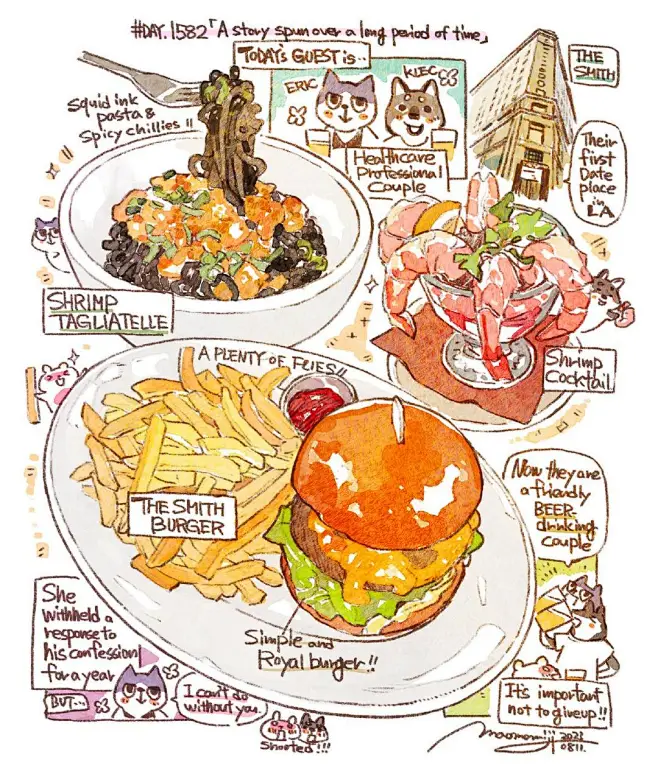 #DAY.1582「A story spun over a long period of time」
TODAY's GUEST is..
ERIC
KLEC
Healthcare
Professional
Couple
THE
SMITH
Their
first
Date
place
in
LA
Squid ink
pasta &
Spicy chillies!!
SHRIMP
TAGLIATELLE
Shrimp
Cocktail
A PLENTY OF FLIES!!
THE SMITH
BURGER
Simple and
Royal burger!!
Now they are
a friendly
BEER-
drinking
couple
She
withheld a
response to
his confession
for a year
BUT...
I can't do
without you.
Shooted!!!
It's important
not to giveup!!
2023
0811.